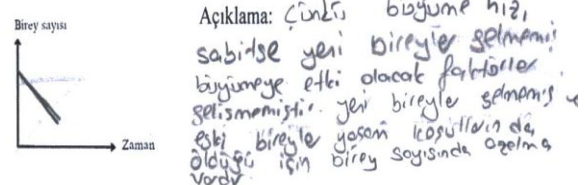 Birey sayısı
Zaman
Açıklama: Çünkü büyüme hızı,
sabitse yeni bireyler gelmemiş
büyümeye etki olacak faktörler
gelişmemiştir. yeni bireyler gelmemiş ve
eski bireyle yaşam koşullarında
öldüğü için birey sayısında azalma
vardır